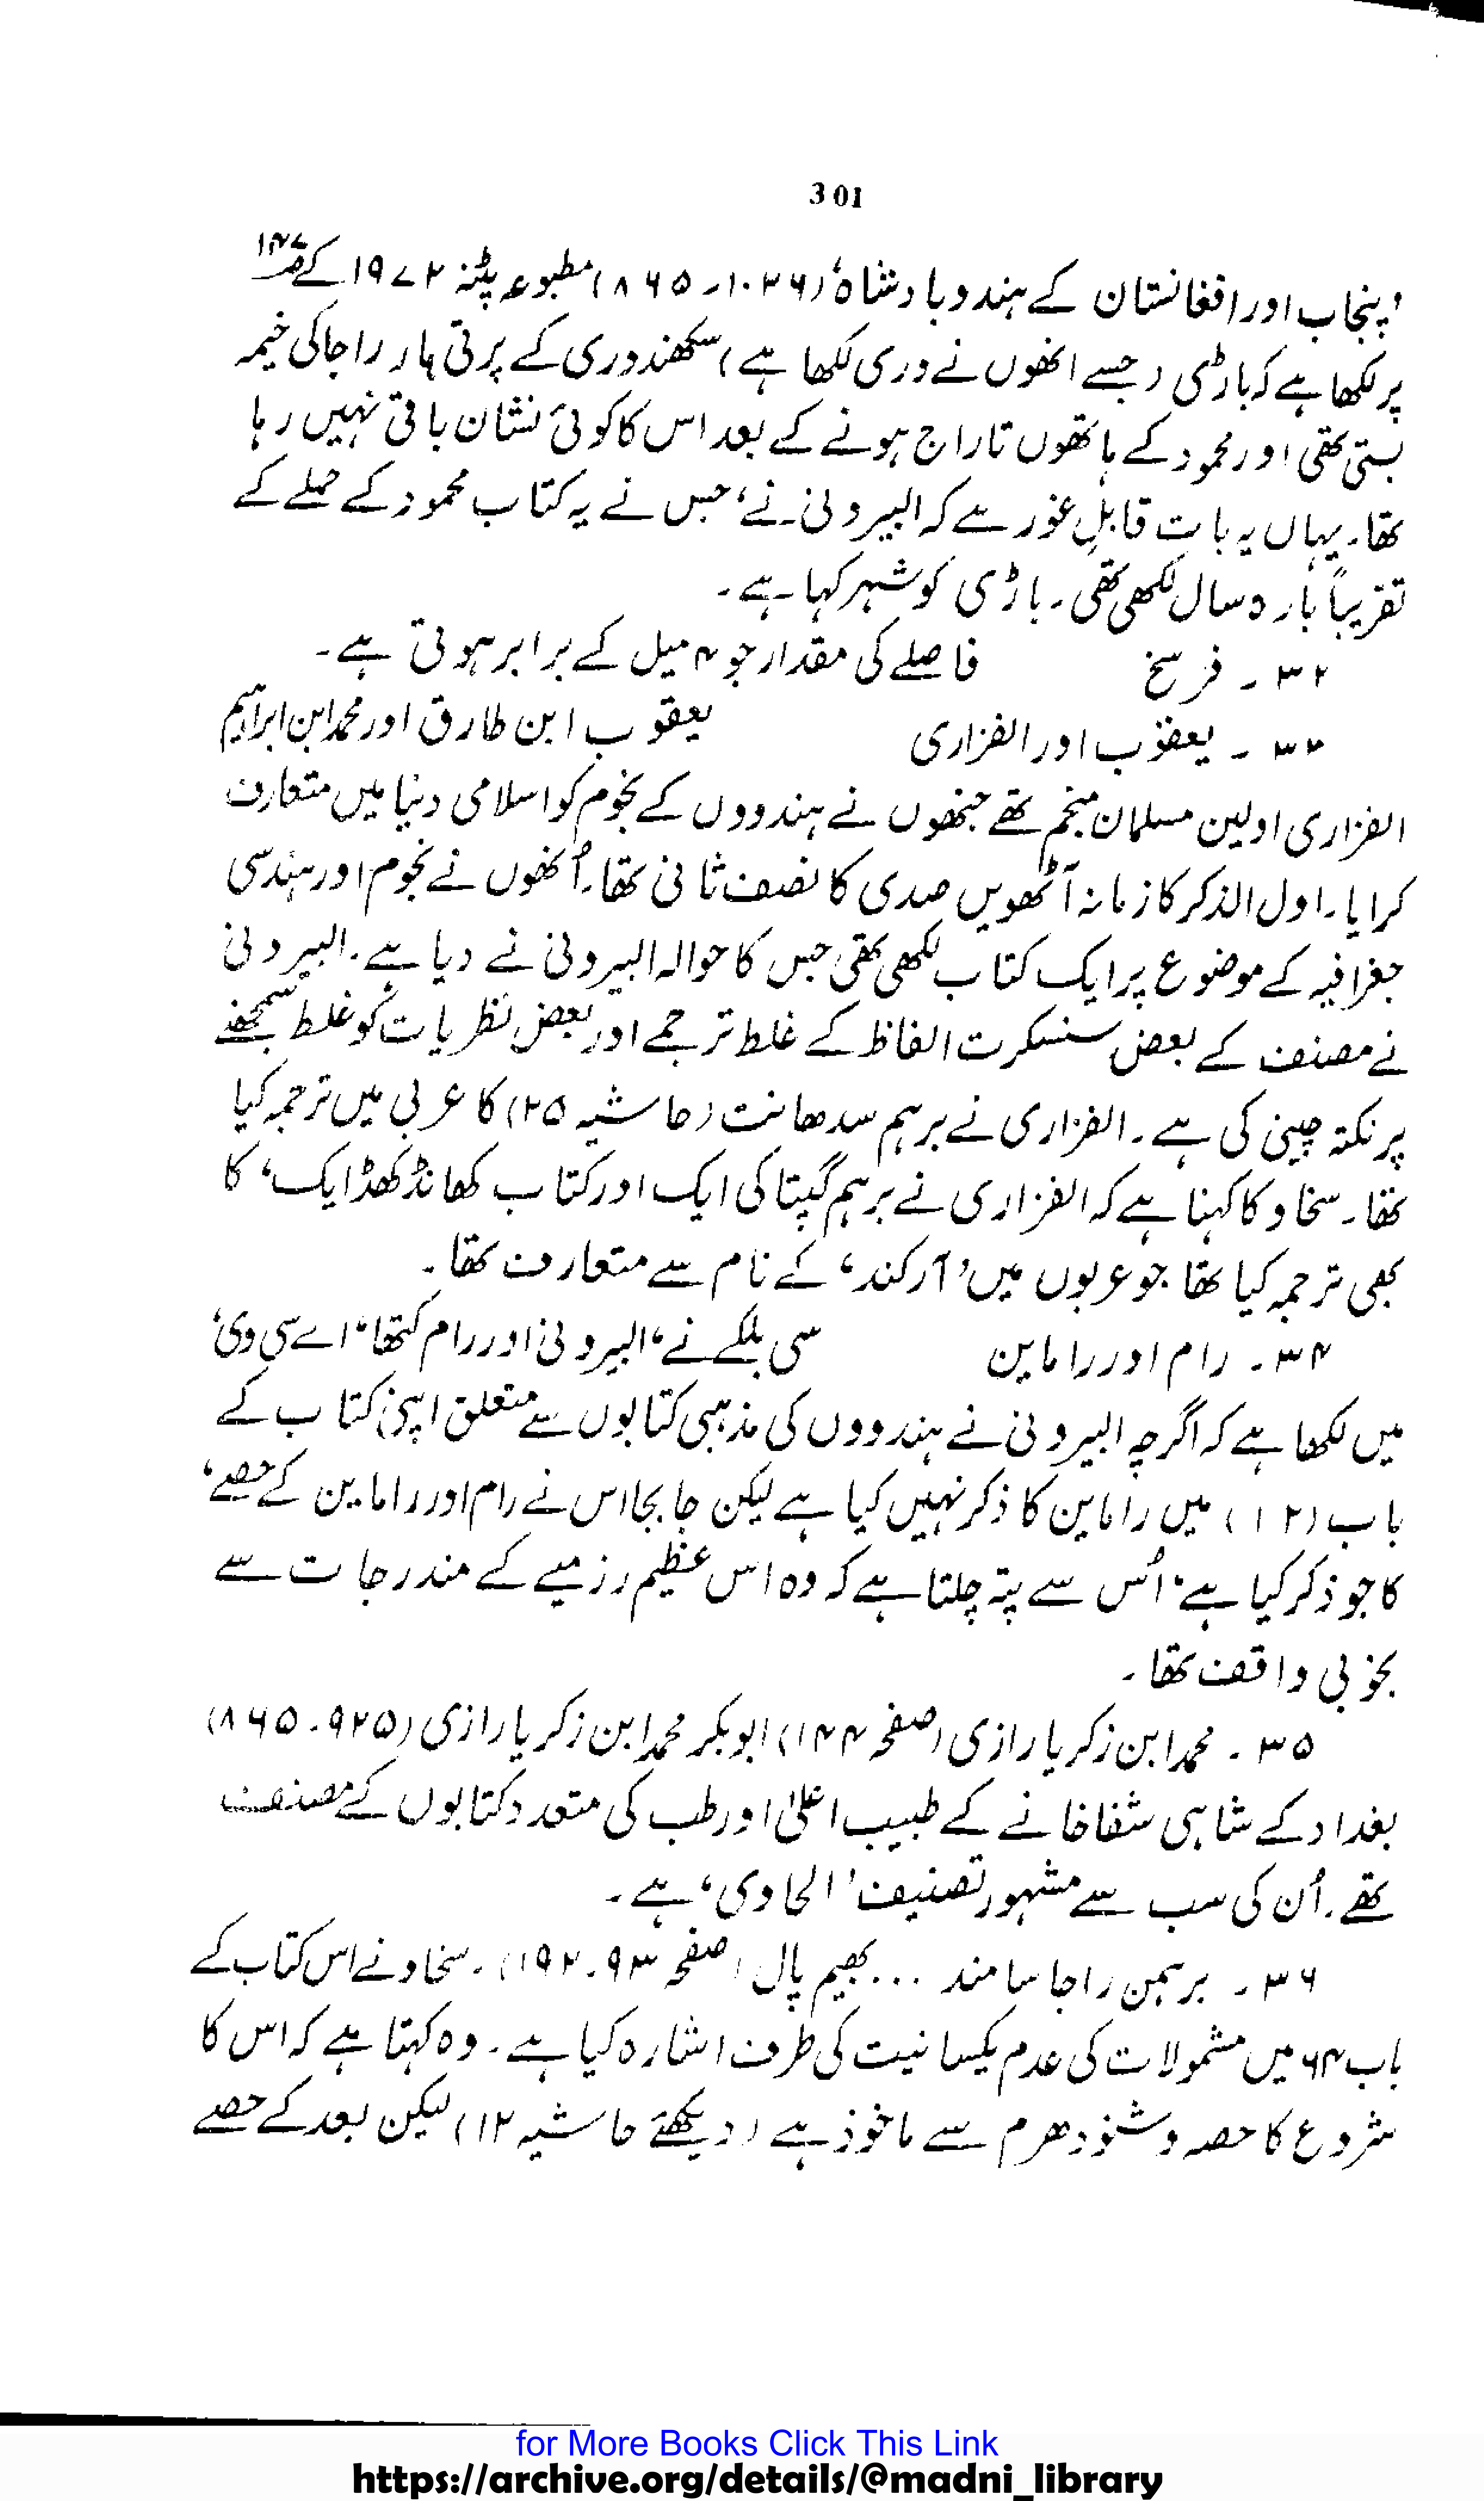 301
'پنجاب اور افغانستان کے ہندو بادشاہ' (۱۰۲۶-۸۶۵) مطبوعہ پٹنہ ۱۹۷۲ کے صـ۱۴۷
پر لکھا ہے کہ باڑی (جسے انھوں نے وری لکھا ہے) سکھندوری کے پرتی ہار راجا کی خیمہ
بستی تھی اور محمود کے ہاتھوں تاراج ہونے کے بعد اس کا کوئی نشان باقی نہیں رہا
تھا۔ یہاں یہ بات قابلِ غور ہے کہ البیرونی نے، جس نے یہ کتاب محمود کے حملے کے
تقریباً بارہ سال لکھی تھی۔ باڑی کو شہر کہا ہے۔
۳۲ ۔ فرسخ فاصلے کی مقدار جو ۴ میل کے برابر ہوتی ہے۔
۳۳ ۔ یعقوب اور الفزاری یعقوب ابن طارق اور محمد ابن ابراہیم
الفزاری اولین مسلمان منجم تھے جنھوں نے ہندووں کے نجوم کو اسلامی دنیا میں متعارف
کرایا۔ اول الذکر کا زمانہ آٹھویں صدی کا نصف ثانی تھا۔ اُنھوں نے نجوم اور ہندسی
جغرافیہ کے موضوع پر ایک کتاب لکھی تھی جس کا حوالہ البیرونی نے دیا ہے۔ البیرونی
نے مصنف کے بعض سنسکرت الفاظ کے غلط ترجمے اور بعض نظریات کو غلط سمجھنے
پر نکتہ چینی کی ہے۔ الفزاری نے برہم سدھانت (حاشیہ ۲۵) کا عربی میں ترجمہ کیا
تھا۔ سخاو کا کہنا ہے کہ الفزاری نے برہم گپتا کی ایک اور کتاب کھانڈ کھڈایک، کا
بھی ترجمہ کیا تھا جو عربوں میں 'آرکند' کے نام سے متعارف تھا۔
۳۴ ۔ رام اور راماین سی بلکے نے 'البیرونی اور رام کتھا' اے سی وی،
میں لکھا ہے کہ اگرچہ البیرونی نے ہندووں کی مذہبی کتابوں سے متعلق اپنی کتاب کے
باب (۱۲) میں راماین کا ذکر نہیں کیا ہے لیکن جا بجا اس نے رام اور راماین کے حصے،
کا جو ذکر کیا ہے، اُس سے پتہ چلتا ہے کہ وہ اس عظیم رزمیے کے مندرجات سے
بخوبی واقف تھا۔
۳۵ ۔ محمد ابن زکریا رازی (صفحہ ۱۴۴) ابو بکر محمد ابن زکریا رازی (۹۲۵-۸۶۵)
بغداد کے شاہی شفاخانے کے طبیب اعلیٰ اور طب کی متعدد کتابوں کے مصنف
تھے۔ اُن کی سب سے مشہور تصنیف 'الحاوی' ہے۔
۳۶ ۔ برہمن راجا سامند ... بھیم پال (صفحہ ۹۳-۱۹۲)۔ سخاو نے اس کتاب کے
باب ۶۴ میں مشمولات کی عدم یکسانیت کی طرف اشارہ کیا ہے۔ وہ کہتا ہے کہ اس کا
شروع کا حصہ وشنو دھرم سے ماخوذ ہے (دیکھئے حاشیہ ۱۲) لیکن بعد کے حصے
for More Books Click This Link
https://archive.org/details/@madni_library